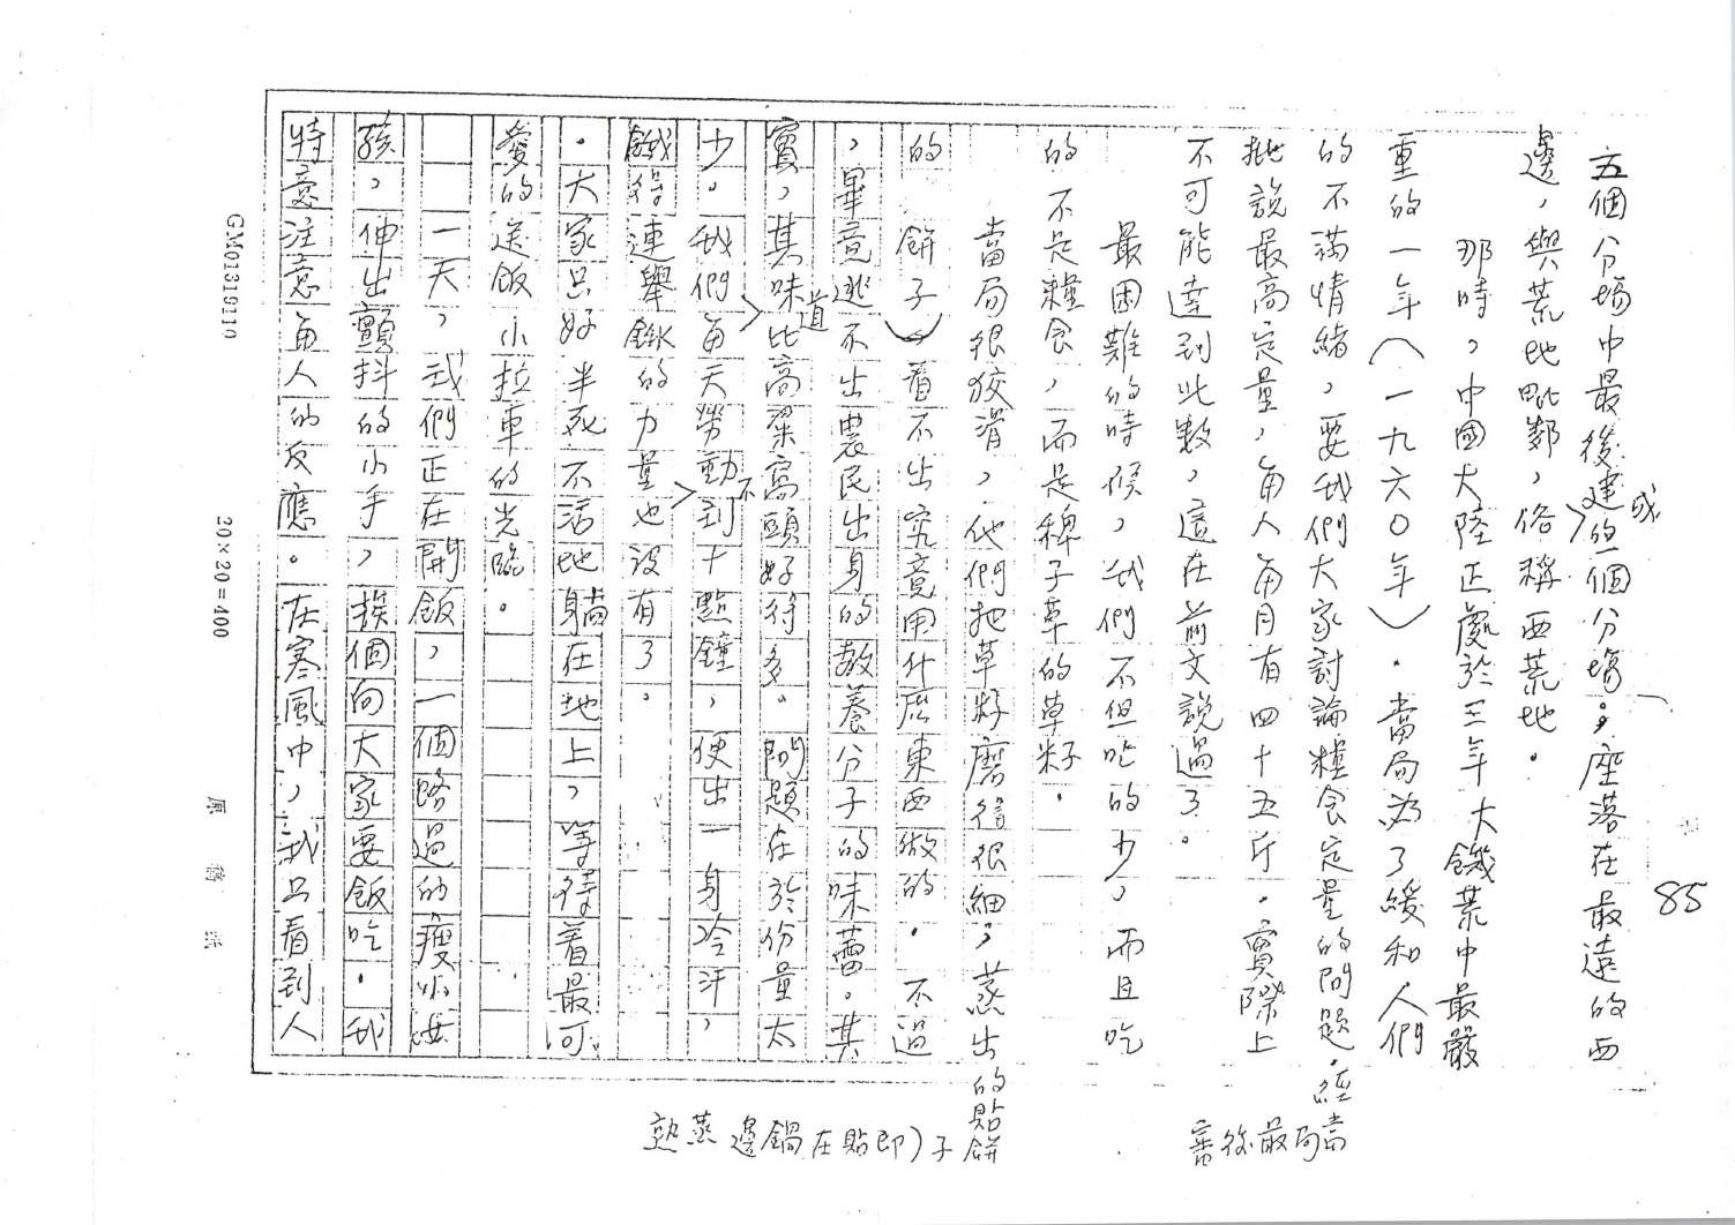 85
五個分場中最後建成的一個分場。座落在最遠的西
邊，與荒地毗鄰，俗稱西荒地。
那時，中國大陸正處於三年大饑荒中最嚴
重的一年（一九六〇年）。當局為了緩和人們
的不滿情緒，要我們大家討論糧食定量的問題。經當局最後審
批說最高定量，每人每月有四十五斤。實際上
不可能達到此數，這在前文說過了。
最困難的時候，我們不但吃的少，而且吃
的不是糧食，而是稗子草的草籽。
當局很狡滑，他們把草籽磨得很細，蒸出的貼餅
子（即貼在鍋邊蒸熟
的餅子）看不出究竟用什麽東西做的。不過
，畢竟逃不出農民出身的教養分子的味蕾。其
實，其味道比高粱窩頭好得多。問題在於份量太
少。我們每天勞動不到十點鐘，便出一身冷汗，
餓得連舉鍬的力量也沒有了。
。大家只好半死不活地躺在地上，等待着最可
愛的送飯小拉車的光臨。
一天，我們正在開飯，一個路過的瘦小女
孩，伸出顫抖的小手，挨個向大家要飯吃。我
特意注意每人的反應。在寒風中，我只看到人
GM01319110
20×20=400
原稿紙